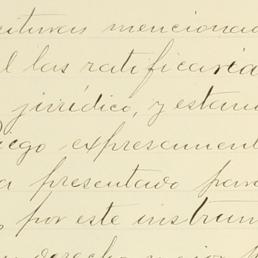 crituras mencionad
l las ratificaria
jurídico, y estan
iego expresament
a presentado para
por este instrum
derecho